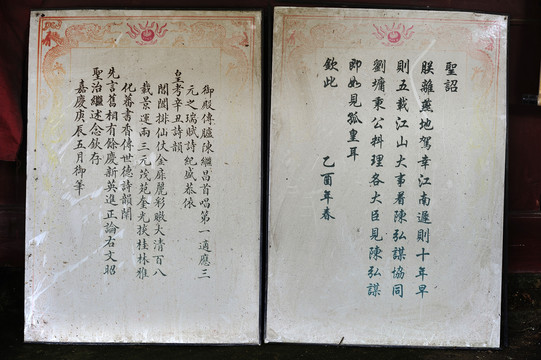 聖詔
朕離燕地駕幸江南遲則十年早
則五載江山大事着陳弘謀協同
劉墉秉公料理各大臣見陳弘謀
即如見孤皇耳
欽此
乙酉年春
御殿傳臚陳繼昌首唱第一適應三
元之瑞賦詩紀盛恭依
皇考辛丑詩韻
閶闔排仙仗金麗彩暾大清百八
載景運兩三元茂苑奎光桂林雅
化蕃書香傳世德詩韻
先言舊相有餘慶新英進正論右文昭
聖治繼述念欽存
嘉慶庚辰五月御筆